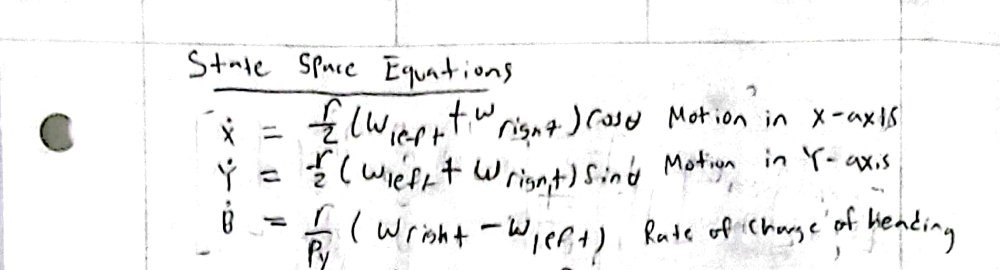 State Space Equations
Ẋ = r/2 (ω left + ω right) cosθ Motion in X-axis
Ẏ = r/2 (ω left + ω right) sinθ Motion in Y-axis
θ̇ = r/Py (ω right - ω left) Rate of change of heading